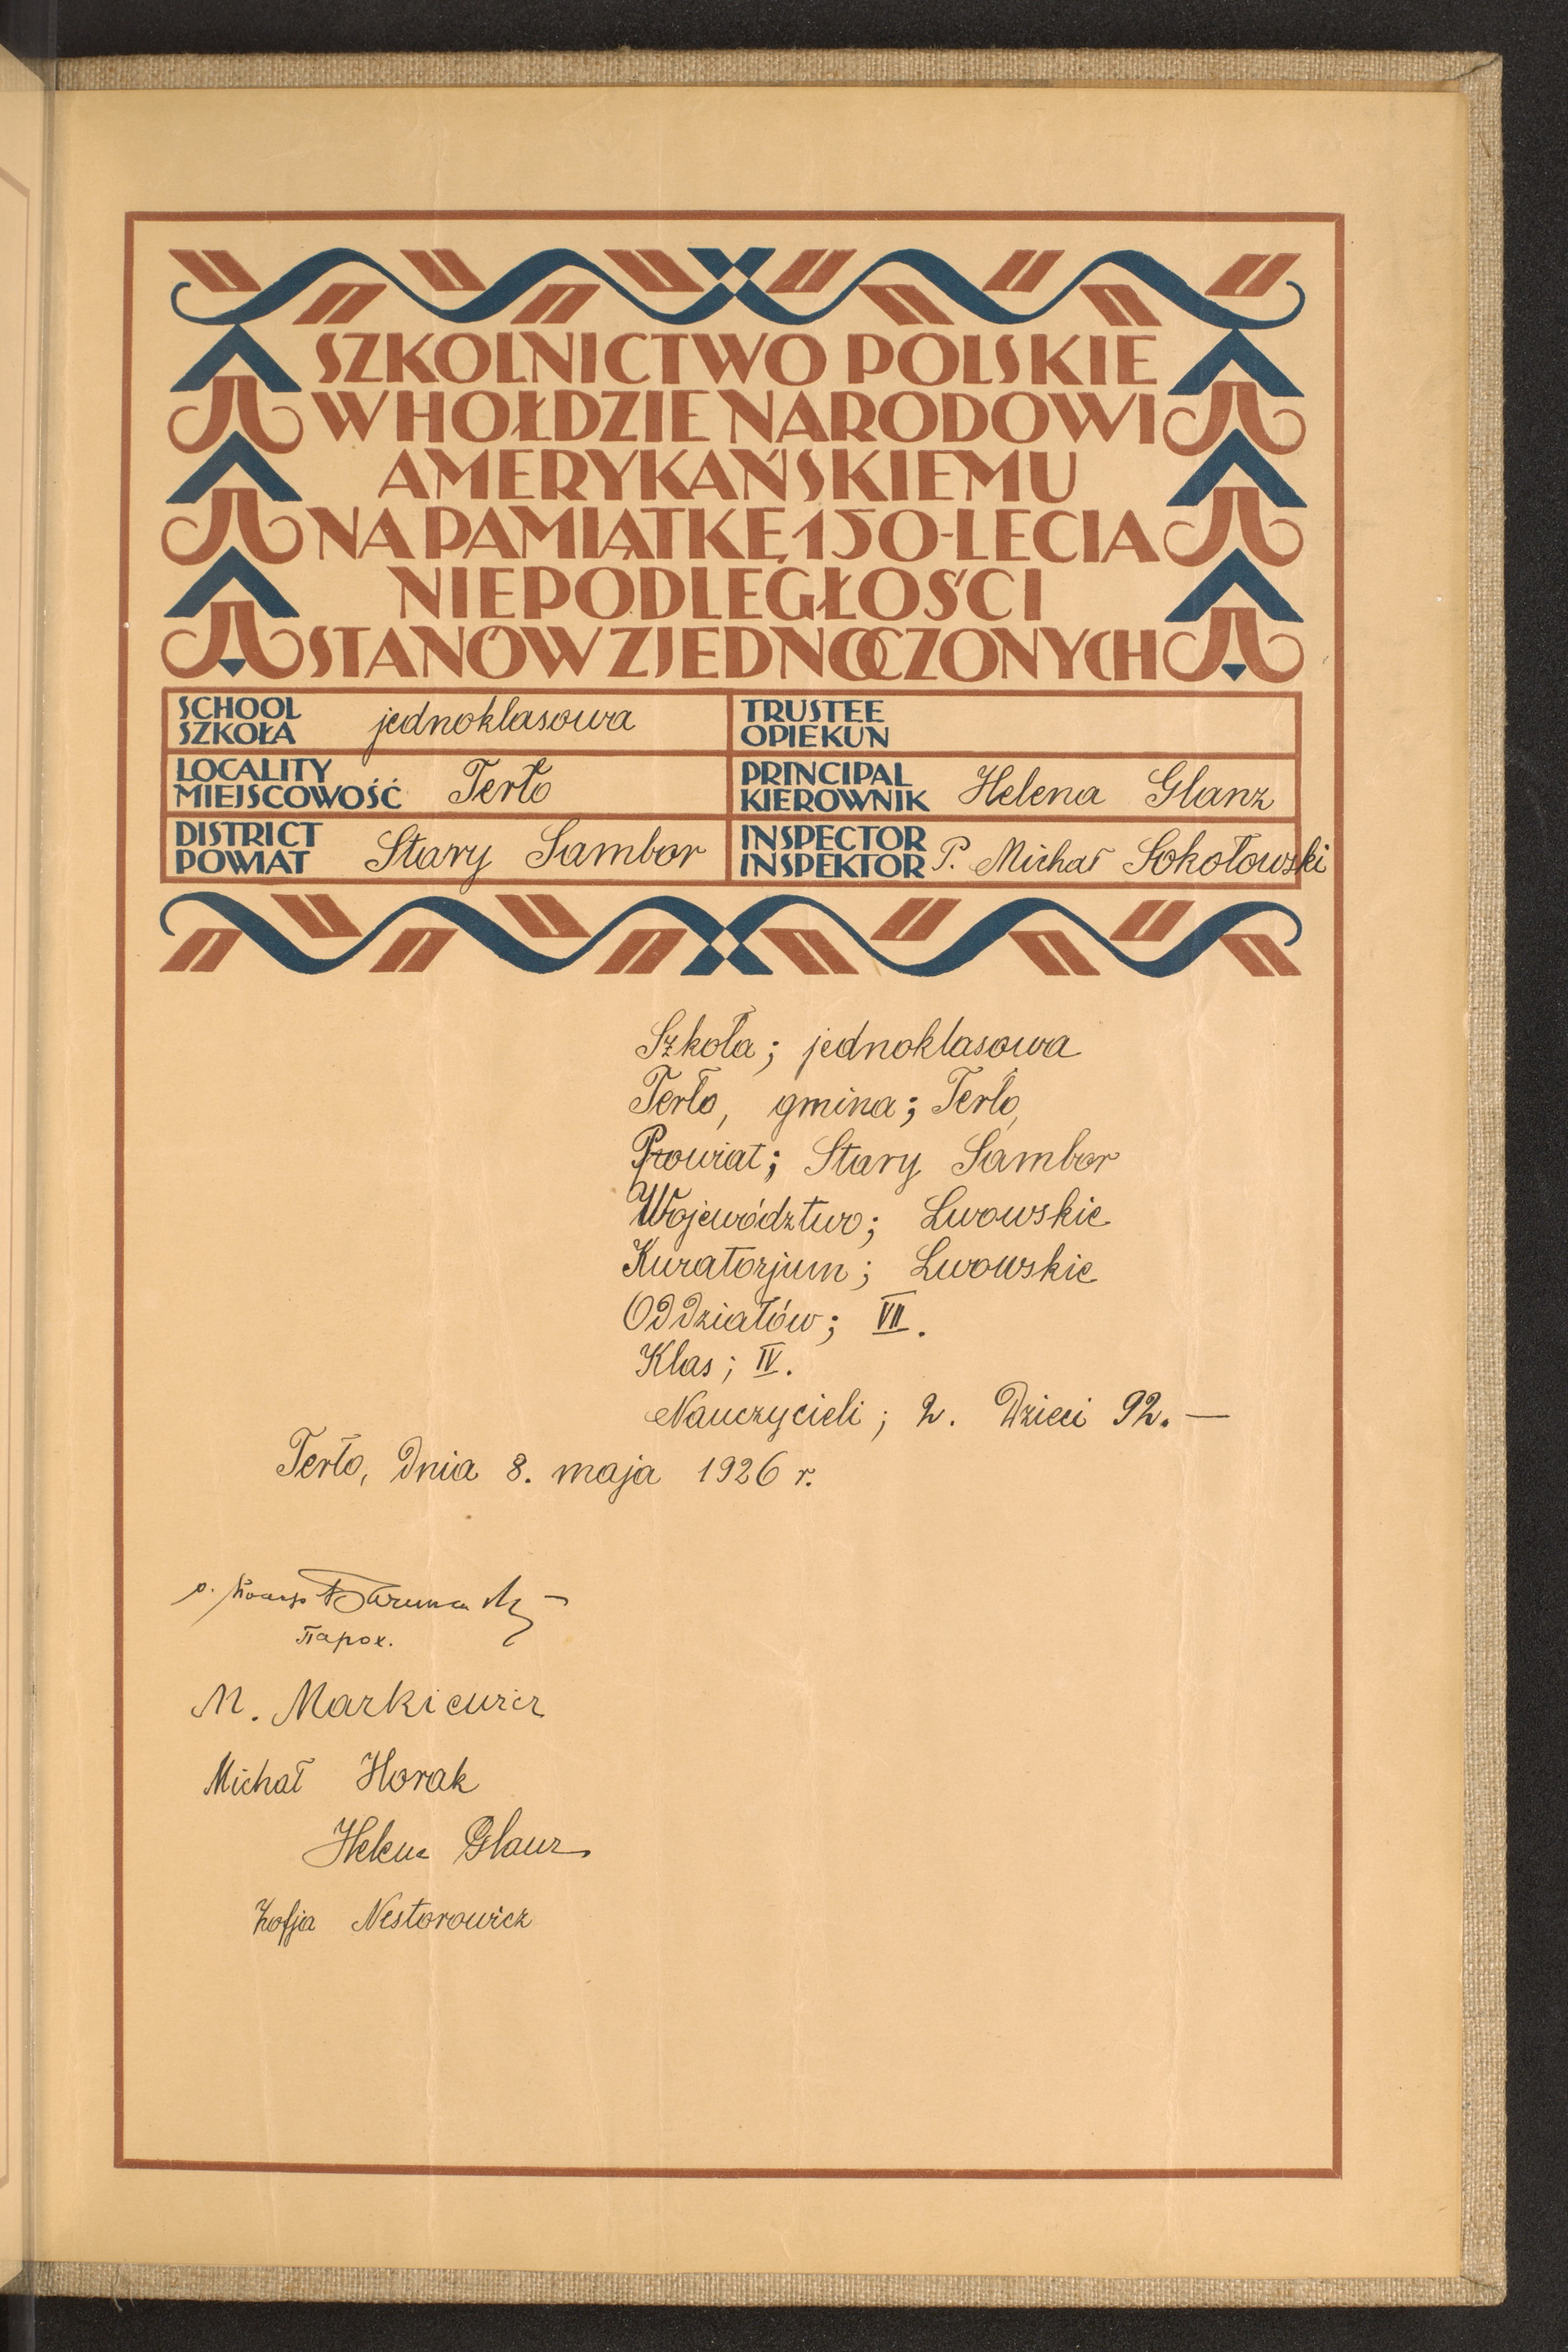 SZKOLNICTWO POLSKIE
W HOŁDZIE NARODOWI
AMERYKAŃSKIEMU
NA PAMIĄTKĘ 150-LECIA
NIEPODLEGŁOŚCI
STANÓW ZJEDNOCZONYCH
SCHOOL
SZKOŁA jednoklasowa
TRUSTEE
OPIEKUN
LOCALITY
MIEJSCOWOŚĆ Terło
PRINCIPAL
KIEROWNIK Helena Glanz
DISTRICT
POWIAT Stary Sambor
INSPECTOR
INSPEKTOR P. Michał Sokołowski
Szkoła; jednoklasowa
Terło, gmina; Terło,
Powiat; Stary Sambor
Województwo; Lwowskie
Kuratorjum; Lwowskie
Oddziałów; VII.
Klas; IV.
Nauczycieli; 2. Dzieci 92. —
Terło, dnia 8. maja 1926 r.
Парох.
M. Markiewicz
Michał Horak
Helena Glanz
Zofja Nestorowicz